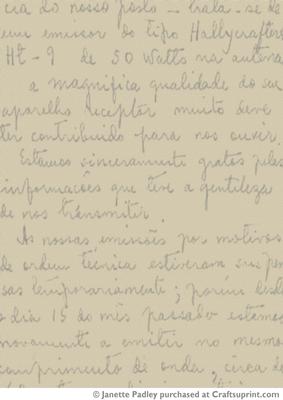 cia do nosso posto - trata-se de
um emissor do tipo Hallycrafters
Ht-9 de 50 Watts na antena
a magnifica qualidade do seu
aparelho receptor muito deve
ter contribuido para nos ouvir.
Estamos sinceramente gratos pelas
informacões que teve a gentileza
de nos transmitir.
As nossas emissões por motivos
de ordem técnica estiveram suspen
sas temporariamente; porém desde
o dia 15 do mês passado estamos
novamente a emitir no mesmo
comprimento de onda, cêrca de
© Janette Padley purchased at Craftsuprint.com